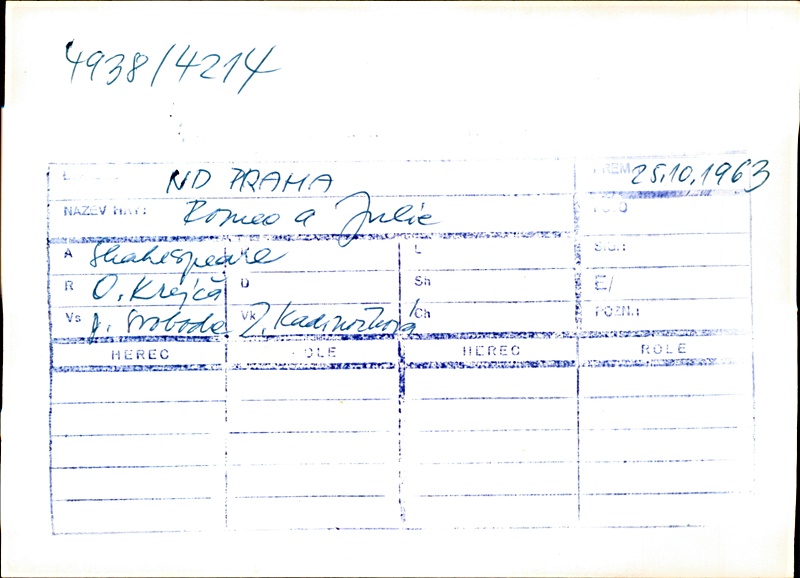 4938/4214
ND PRAHA PREM 25.10.1963
NÁZEV HRY: Romeo a Julie
A Shakespeare L SIG.:
R O. Krejča D Sh E/
Vs J. Svoboda Vk Z. Kadrnožková Ch POZN.:
HEREC ROLE HEREC ROLE